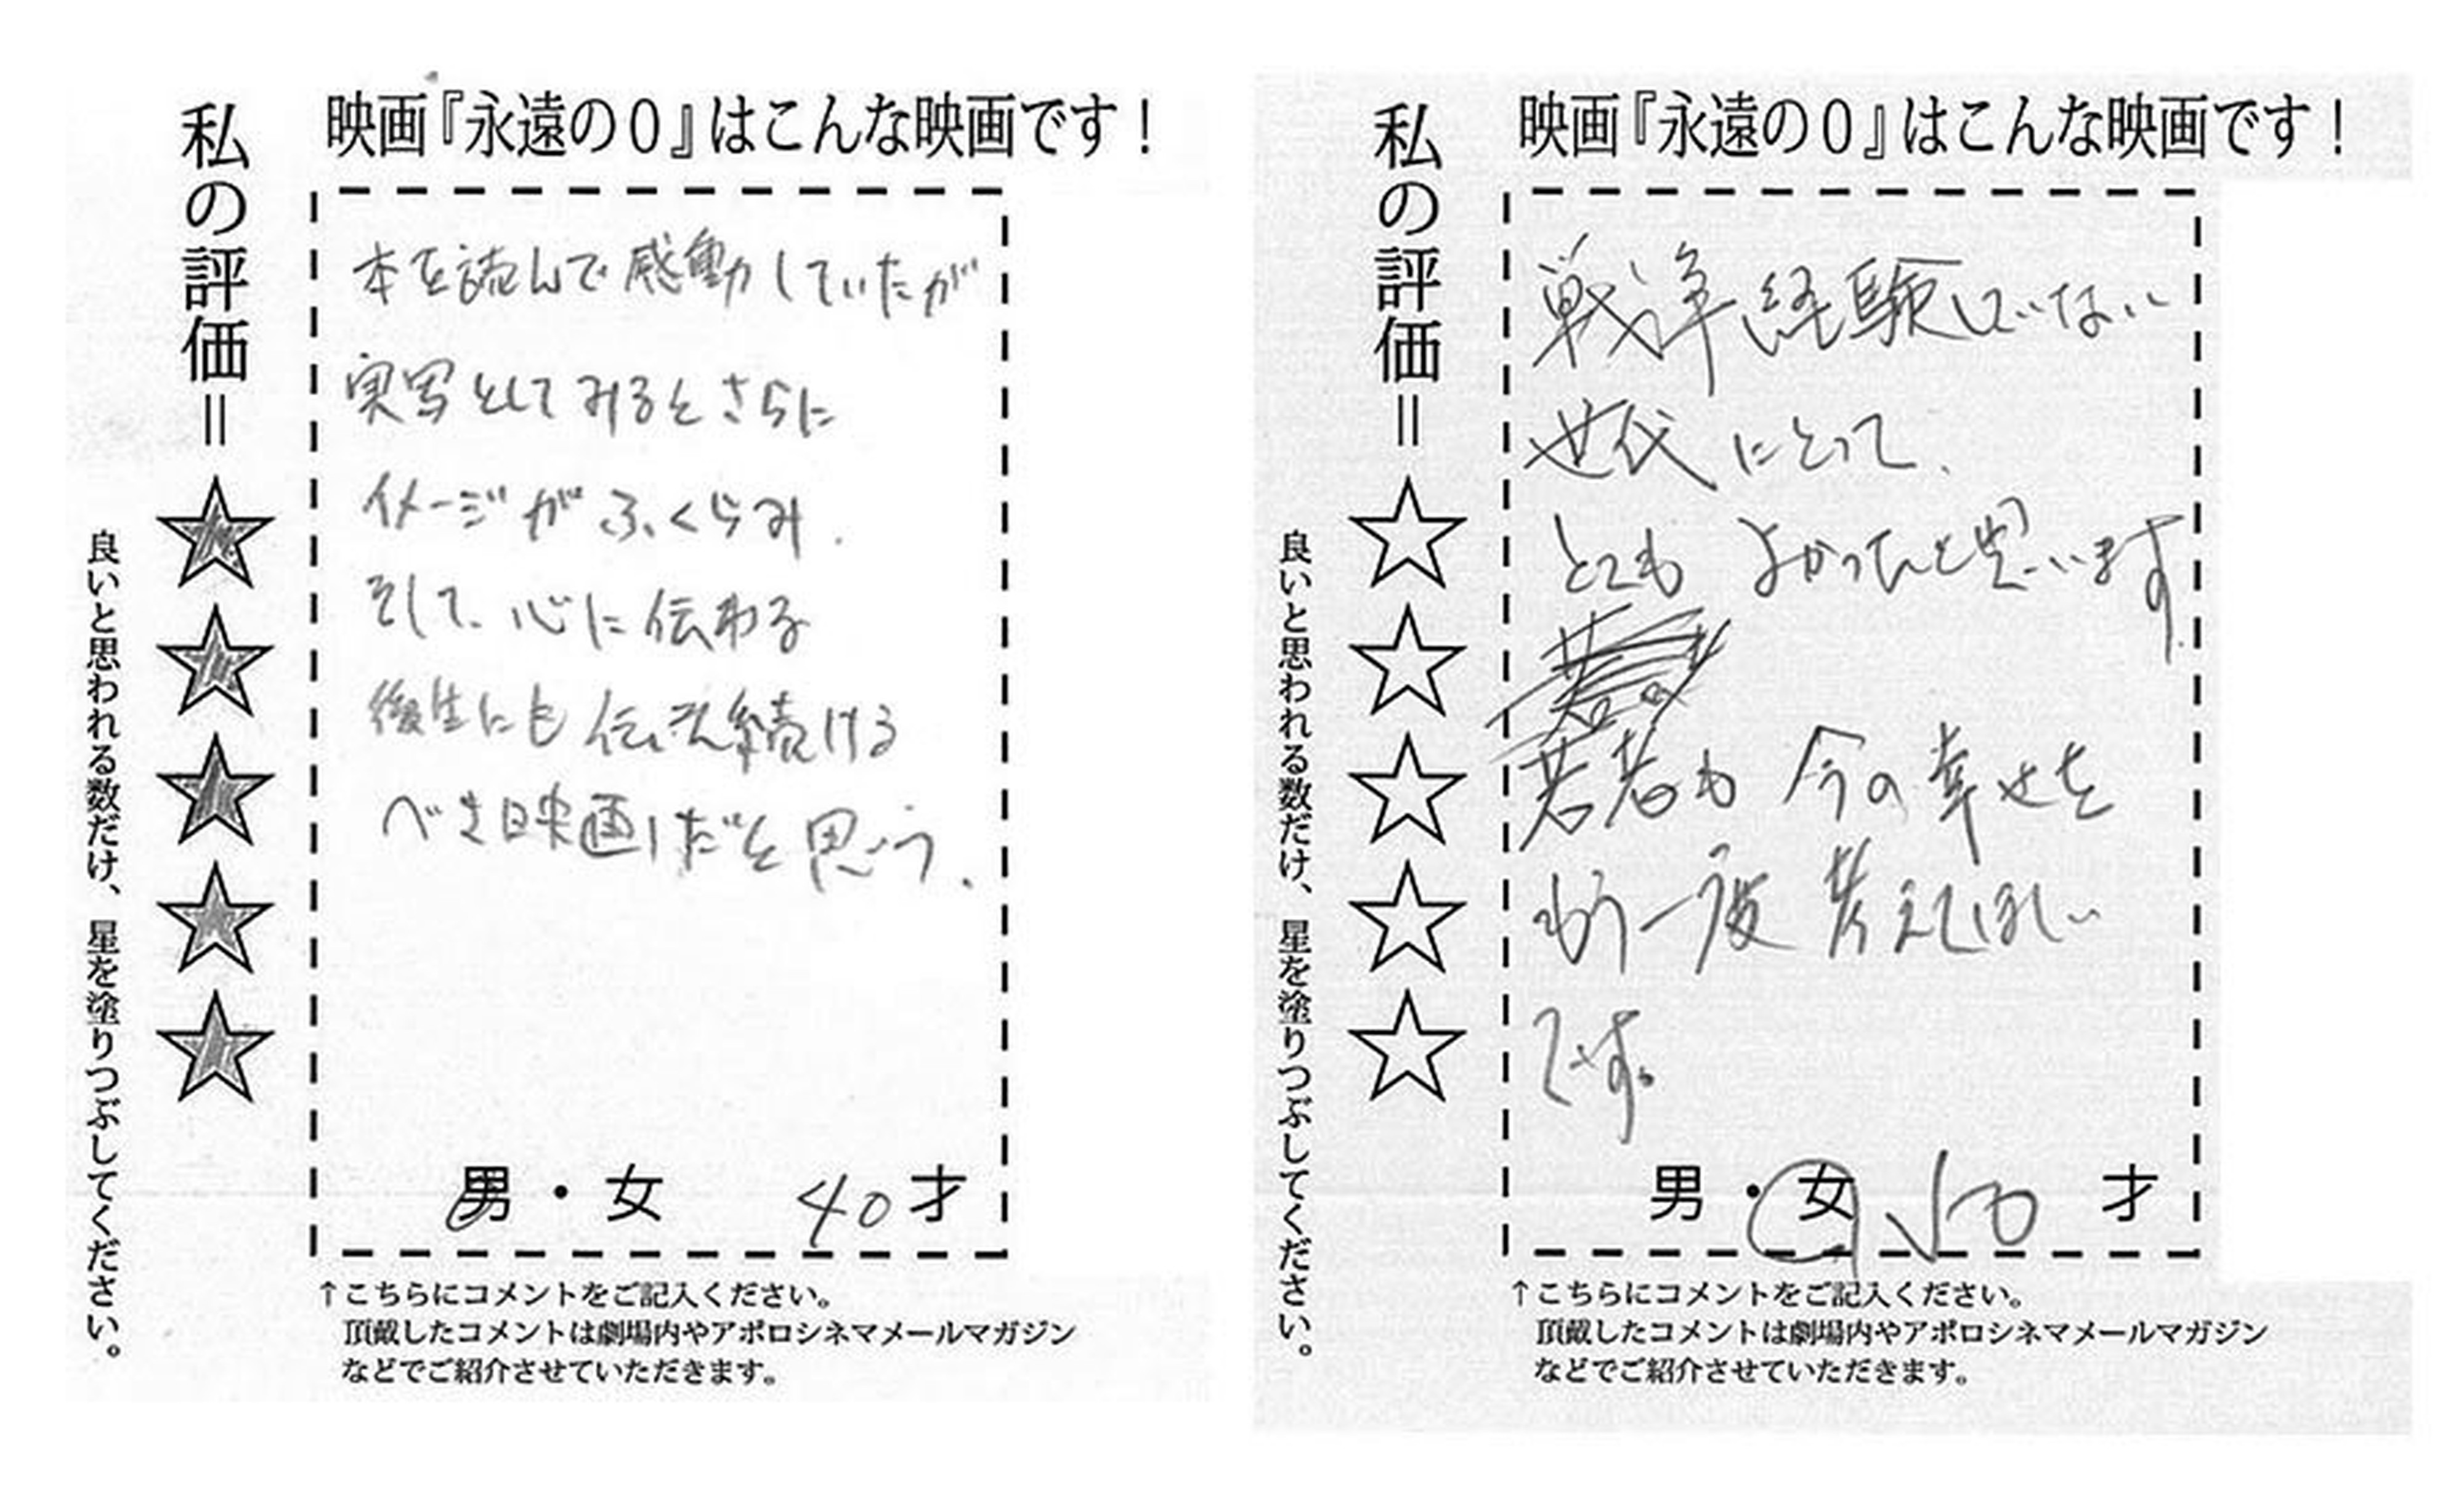 映画『永遠の0』はこんな映画です！
私の評価＝☆☆☆☆☆
良いと思われる数だけ、星を塗りつぶしてください。
本を読んで感動していたが
実写としてみるとさらに
イメージがふくらみ.
そして、心に伝わる
後生にも伝え続ける
べき映画だと思う.
男・女 40才
↑こちらにコメントをご記入ください。
頂戴したコメントは劇場内やアポロシネマメールマガジン
などでご紹介させていただきます。
映画『永遠の0』はこんな映画です！
私の評価＝☆☆☆☆☆
良いと思われる数だけ、星を塗りつぶしてください。
戦争経験していない
世代にとって、
とても よかったと思います
若者も 今の幸せを
もう一度 考えてほしい
です。
男・女 50 才
↑こちらにコメントをご記入ください。
頂戴したコメントは劇場内やアポロシネマメールマガジン
などでご紹介させていただきます。